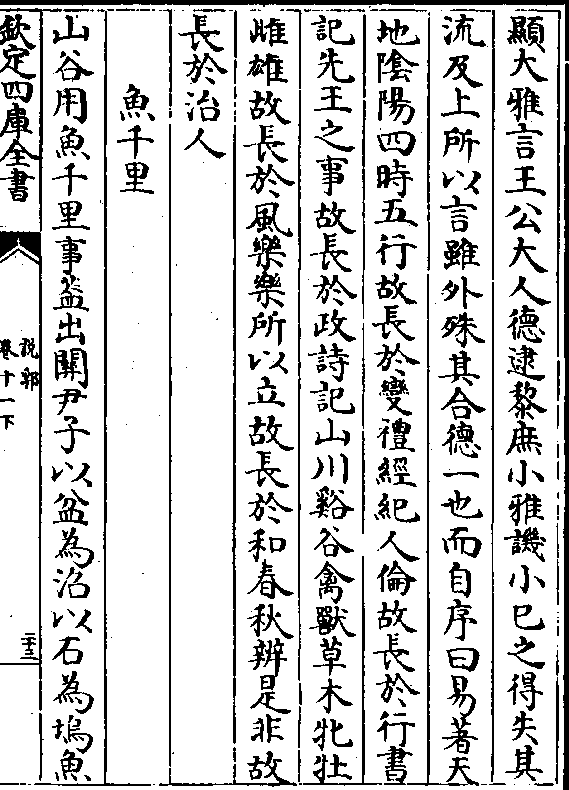 顯大雅言王公大人德逮黎庶小雅譏小已之得失其
流及上所以言雖外殊其合德一也而自序曰易著天
地陰陽四時五行故長於變禮經紀人倫故長於行書
記先王之事故長於政詩記山川谿谷禽獸草木牝牡
雌雄故長於風樂樂所以立故長於和春秋辨是非故
長於治人
魚千里
山谷用魚千里事葢出關尹子以盆為沼以石為塢魚
欽定四庫全書
說郛
卷十一下
二十三